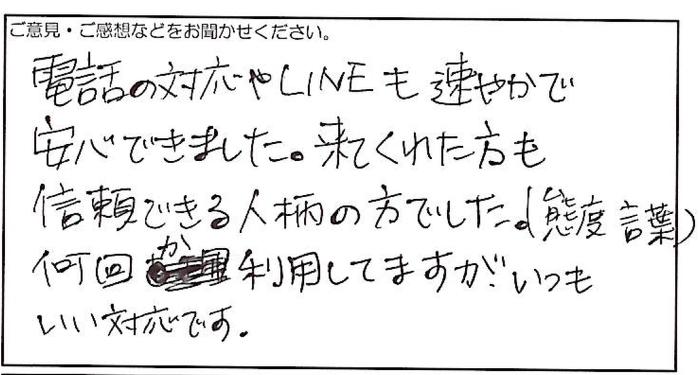 ご意見・ご感想などをお聞かせください。
電話の対応やLINEも速やかで
安心できました。来てくれた方も
信頼できる人柄の方でした。(態度言葉)
何回か利用してますが、いつも
いい対応です。